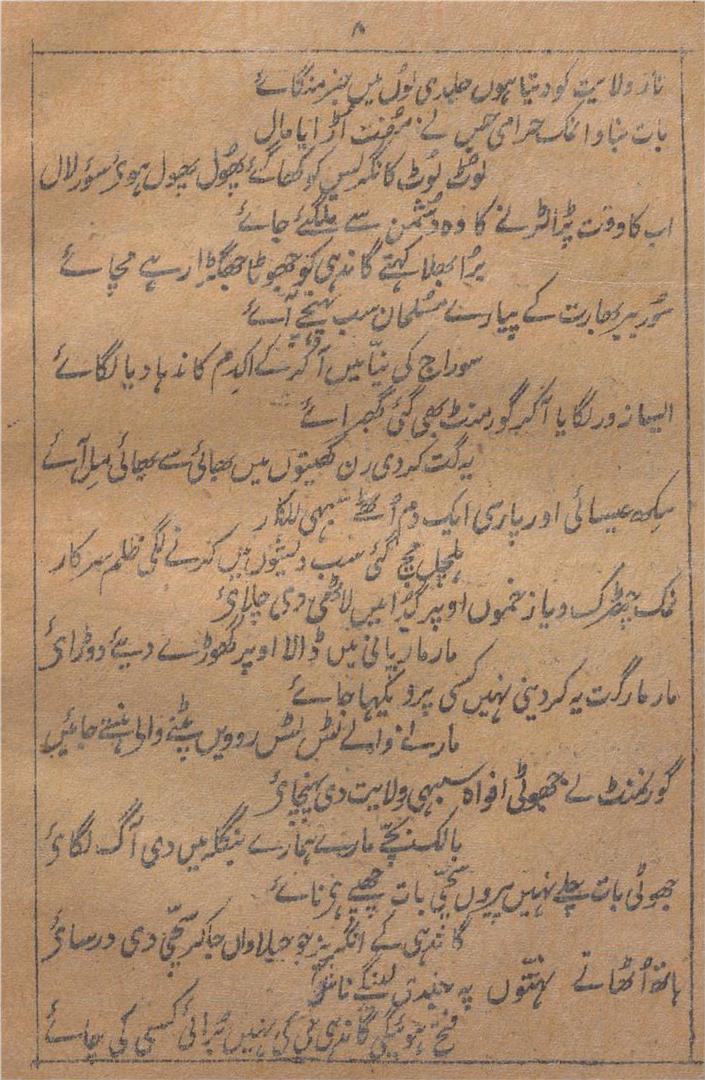 ۸
تار ولایت کو دیتا ہوں جلدی لوں میں خبر منگائے
بات بنا وا نمک حرامی جس نے مفت اڑایا مال
لوٹ لوٹ کانگریس کو کھا گئے پھول پھول ہوئے سؤر لال
اب کا وقت پڑا لڑنے کا وہ دشمن سے مل گئے جائے
برا بھلا کہتے گاندہی کو جھوٹا جھگڑا رہے مچائے
سور بیر بھارت کے پیارے مسلمان سب پہنچے آئے
سوراج کی نیّا میں آ کر کے اکدم کاندہا دیا لگائے
ایسا زور لگایا آ کر گورمنٹ بھی گئی گھبرائے
یہ گت کر دی رن کھیتوں میں بھائی سے بھائی مل آئے
سکھ عیسائی اور پارسی ایک دم اٹھے سبہی للکار
ہلچل مچ گئی سب دیشوں میں کرنے لگی ظلم سرکار
نمک چھڑک دیا زخموں اوپر گرا میں لاٹھی دی چلائے
مار مار پانی میں ڈالا اوپر گھوڑے دیئے دوڑائے
مار مار گت یہ کر دینی نہیں کسی پر دیکہا جائے
مارنے والے لٹس لٹس روویں پٹنے والی ہنستے جائیں
گورنمنٹ نے جھوٹی افواہ سبہی ولایت دی پہنچائے
بالک بچے مارے ہمارے بنگلہ میں دی آگ لگائے
جھوٹی بات چلے نہیں پیروں سچی بات چھپے ہی نائے
گاندہی کے انگریز جو چیلا واں جا کر سچی دی درسائے
ہاتھ اٹھاتے نہتوں پہ جیدی لینگے ناش
فتح ہوئیگی گاندہی جی کی نہیں برائی کسی کی چائے